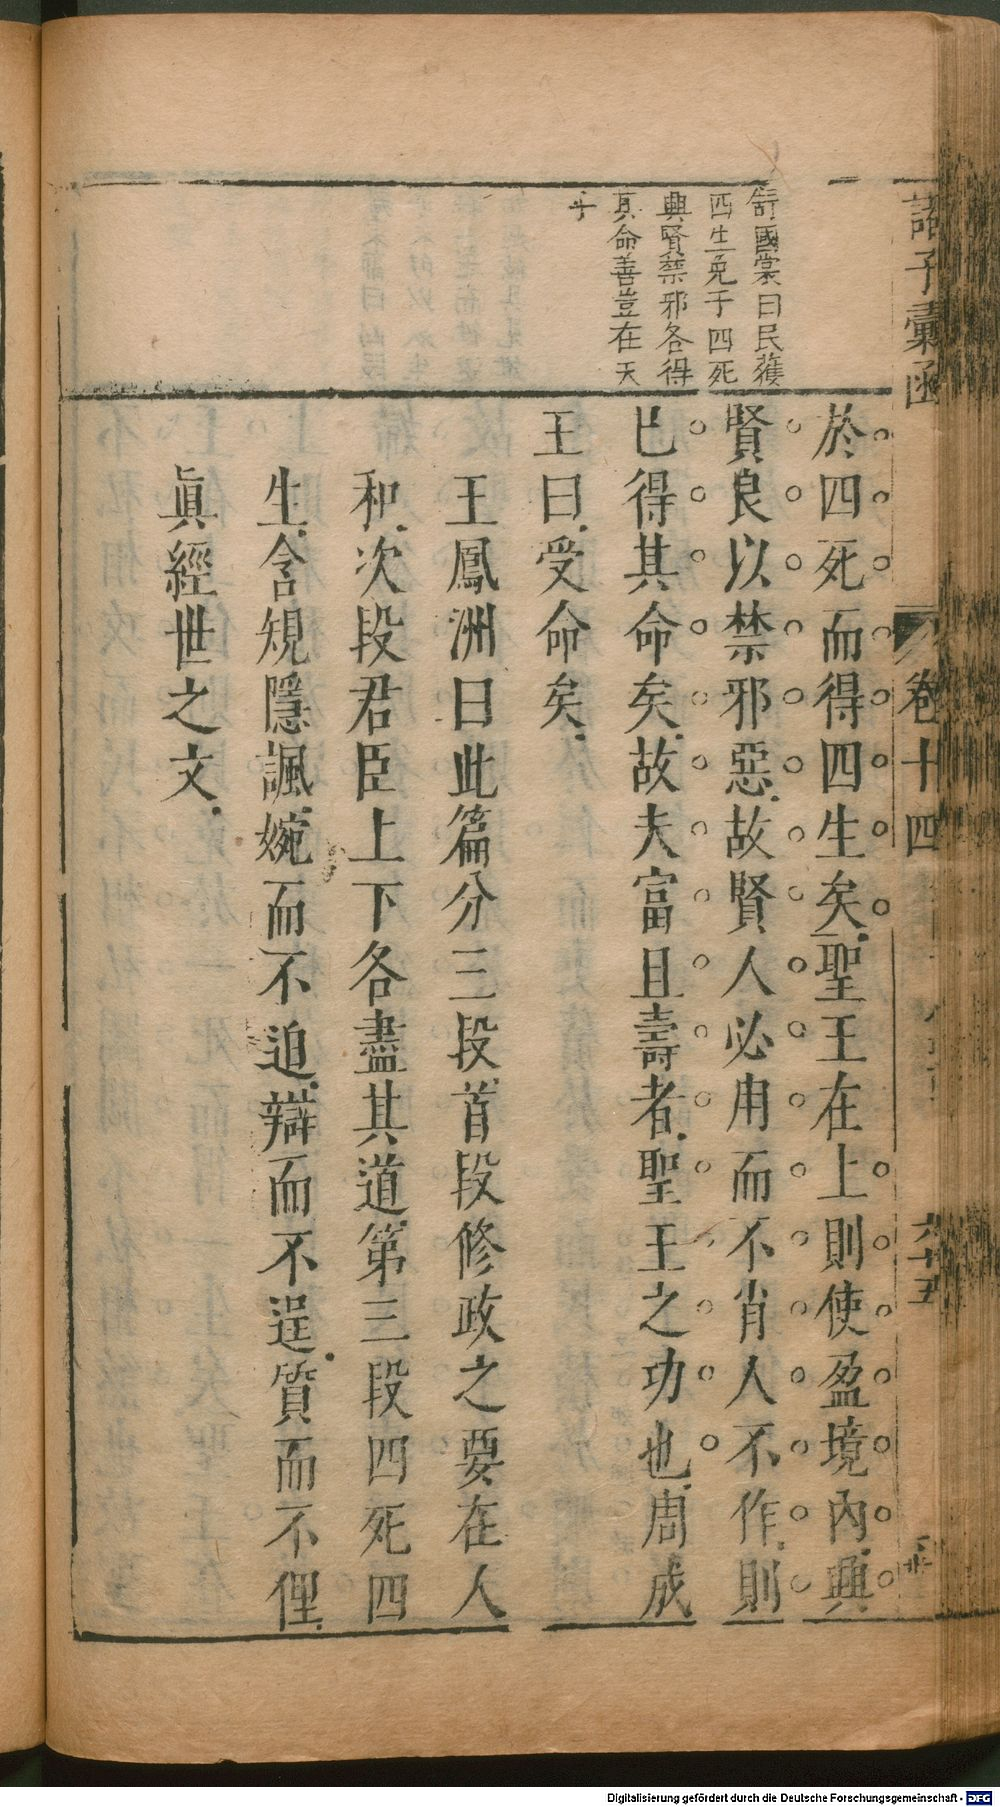 諸子彙函
卷十四
六十五
舒國裳曰民獲
四生免于四死
興賢禁邪各得
真命善豈在天
乎
於四死而得四生矣聖王在上則使盈境內興
賢良以禁邪惡故賢人必用而不肖人不作則
已得其命矣故夫富且壽者聖王之功也周成
王曰受命矣
王鳳洲曰此篇分三段首段修政之要在人
和次段君臣上下各盡其道第三段四死四
生含規隱諷婉而不迫辯而不逞質而不俚
眞經世之文
Digitalisierung gefördert durch die Deutsche Forschungsgemeinschaft - DFG